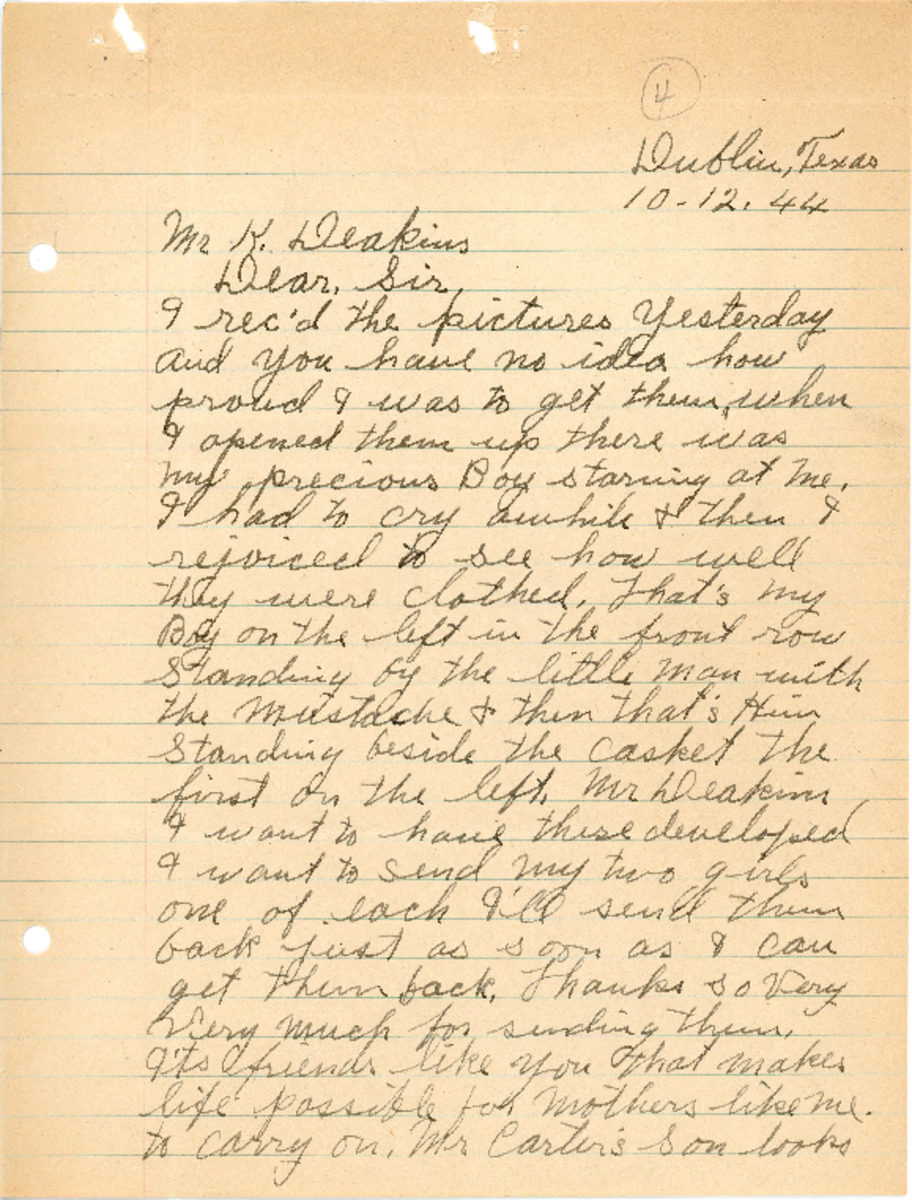 4
Dublin, Texas
10-12. 44
Mr K. Deakins
Dear. Sir,
I rec'd the pictures yesterday
and you have no idea how
proud I was to get them, when
I opened them up there was
my precious Boy staring at me.
I had to cry awhile & then I
rejoiced to see how well
they were clothed. That's my
Boy on the left in the front row
Standing by the little man with
the Mustache & then that's Him
Standing beside the casket the
first on the left. Mr Deakins,
I want to have these developed
I want to send my two girls
one of each I'll send them
back just as soon as I can
get them back. Thanks so Very
Very much for sending them.
Its friends like you that makes
life possible for Mothers like me.
to carry on. Mr Carter's Son looks